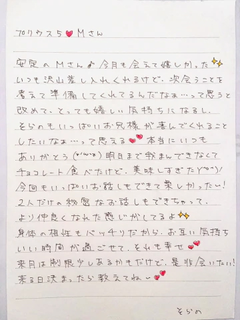 プリカス5❤Mさん
安定のMさん♪今月も会えて嬉しかった✨
いつも沢山差し入れくれるけど、次会うことを
考えて準備してくれてるんだなぁ…って思うと
改めて、とっても嬉しい気持ちになるし、
そらのもいっぱいお兄様が喜んでくれること
したいなぁ…って思える💕本当にいつも
ありがとう(*'▽'*)明日まで我まんできなくて
チョコレート食べたけど、美味しすぎた(°▽°)/
今回もいっぱいお話しもできて楽しかったー!
2人だけの秘密なお話しもできちゃって、
より仲良くなれた感じがしてるよ✨
身体の相性もバッチリだから、お互い気持ち
いい時間が過ごせて、それも幸せ💕
来月は制限少しあるかもだけど、是非会いたい!
来る日決まったら教えてねー💕
そらの